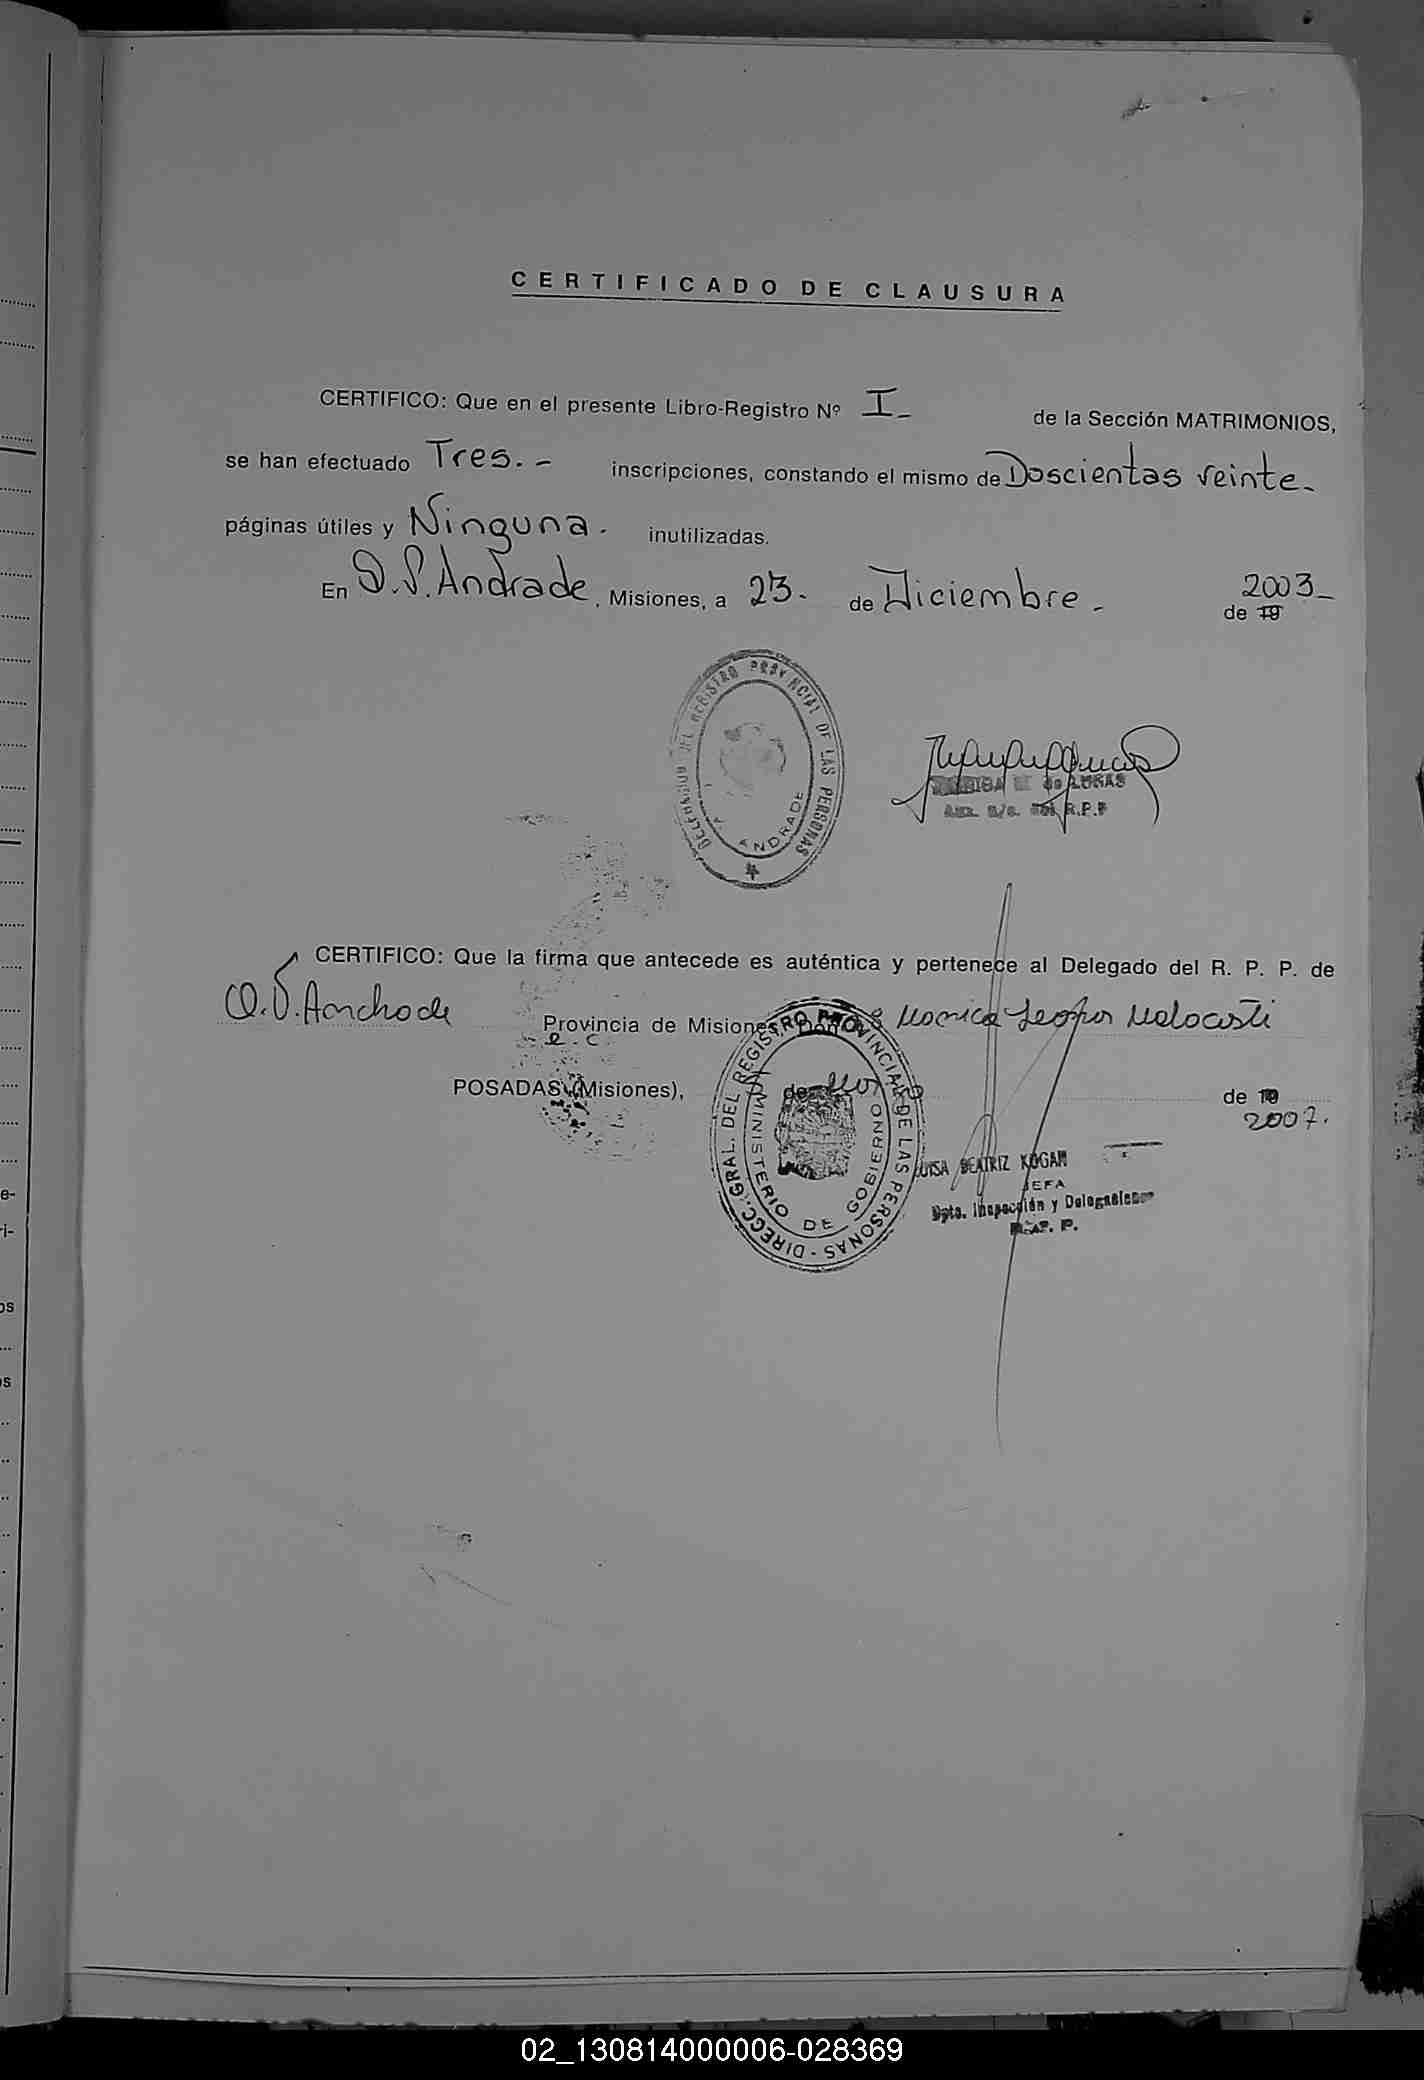 CERTIFICADO DE CLAUSURA
CERTIFICO: Que en el presente Libro-Registro Nº I- de la Sección MATRIMONIOS,
se han efectuado Tres.- inscripciones, constando el mismo de Doscientas veinte-
páginas útiles y Ninguna. inutilizadas.
2003-
En O.V. Andrade, Misiones, a 23. de Diciembre- de 19
DELEGACION DEL REGISTRO PROVINCIAL DE LAS PERSONAS
ANDRADE
de LUKAS
R.P.P
CERTIFICO: Que la firma que antecede es auténtica y pertenece al Delegado del R. P. P. de
O.V. Andrade Provincia de Misiones, Don Monica
POSADAS (Misiones), de de 19
2007.
DIRECC. GRAL. DEL REGISTRO PROVINCIAL DE LAS PERSONAS -
MINISTERIO DE GOBIERNO
LUISA BEATRIZ KOGAN
JEFA
Dpto. Inspección y Delegaciones
R. P. P.
e-
ri-
os
os
02_130814000006-028369